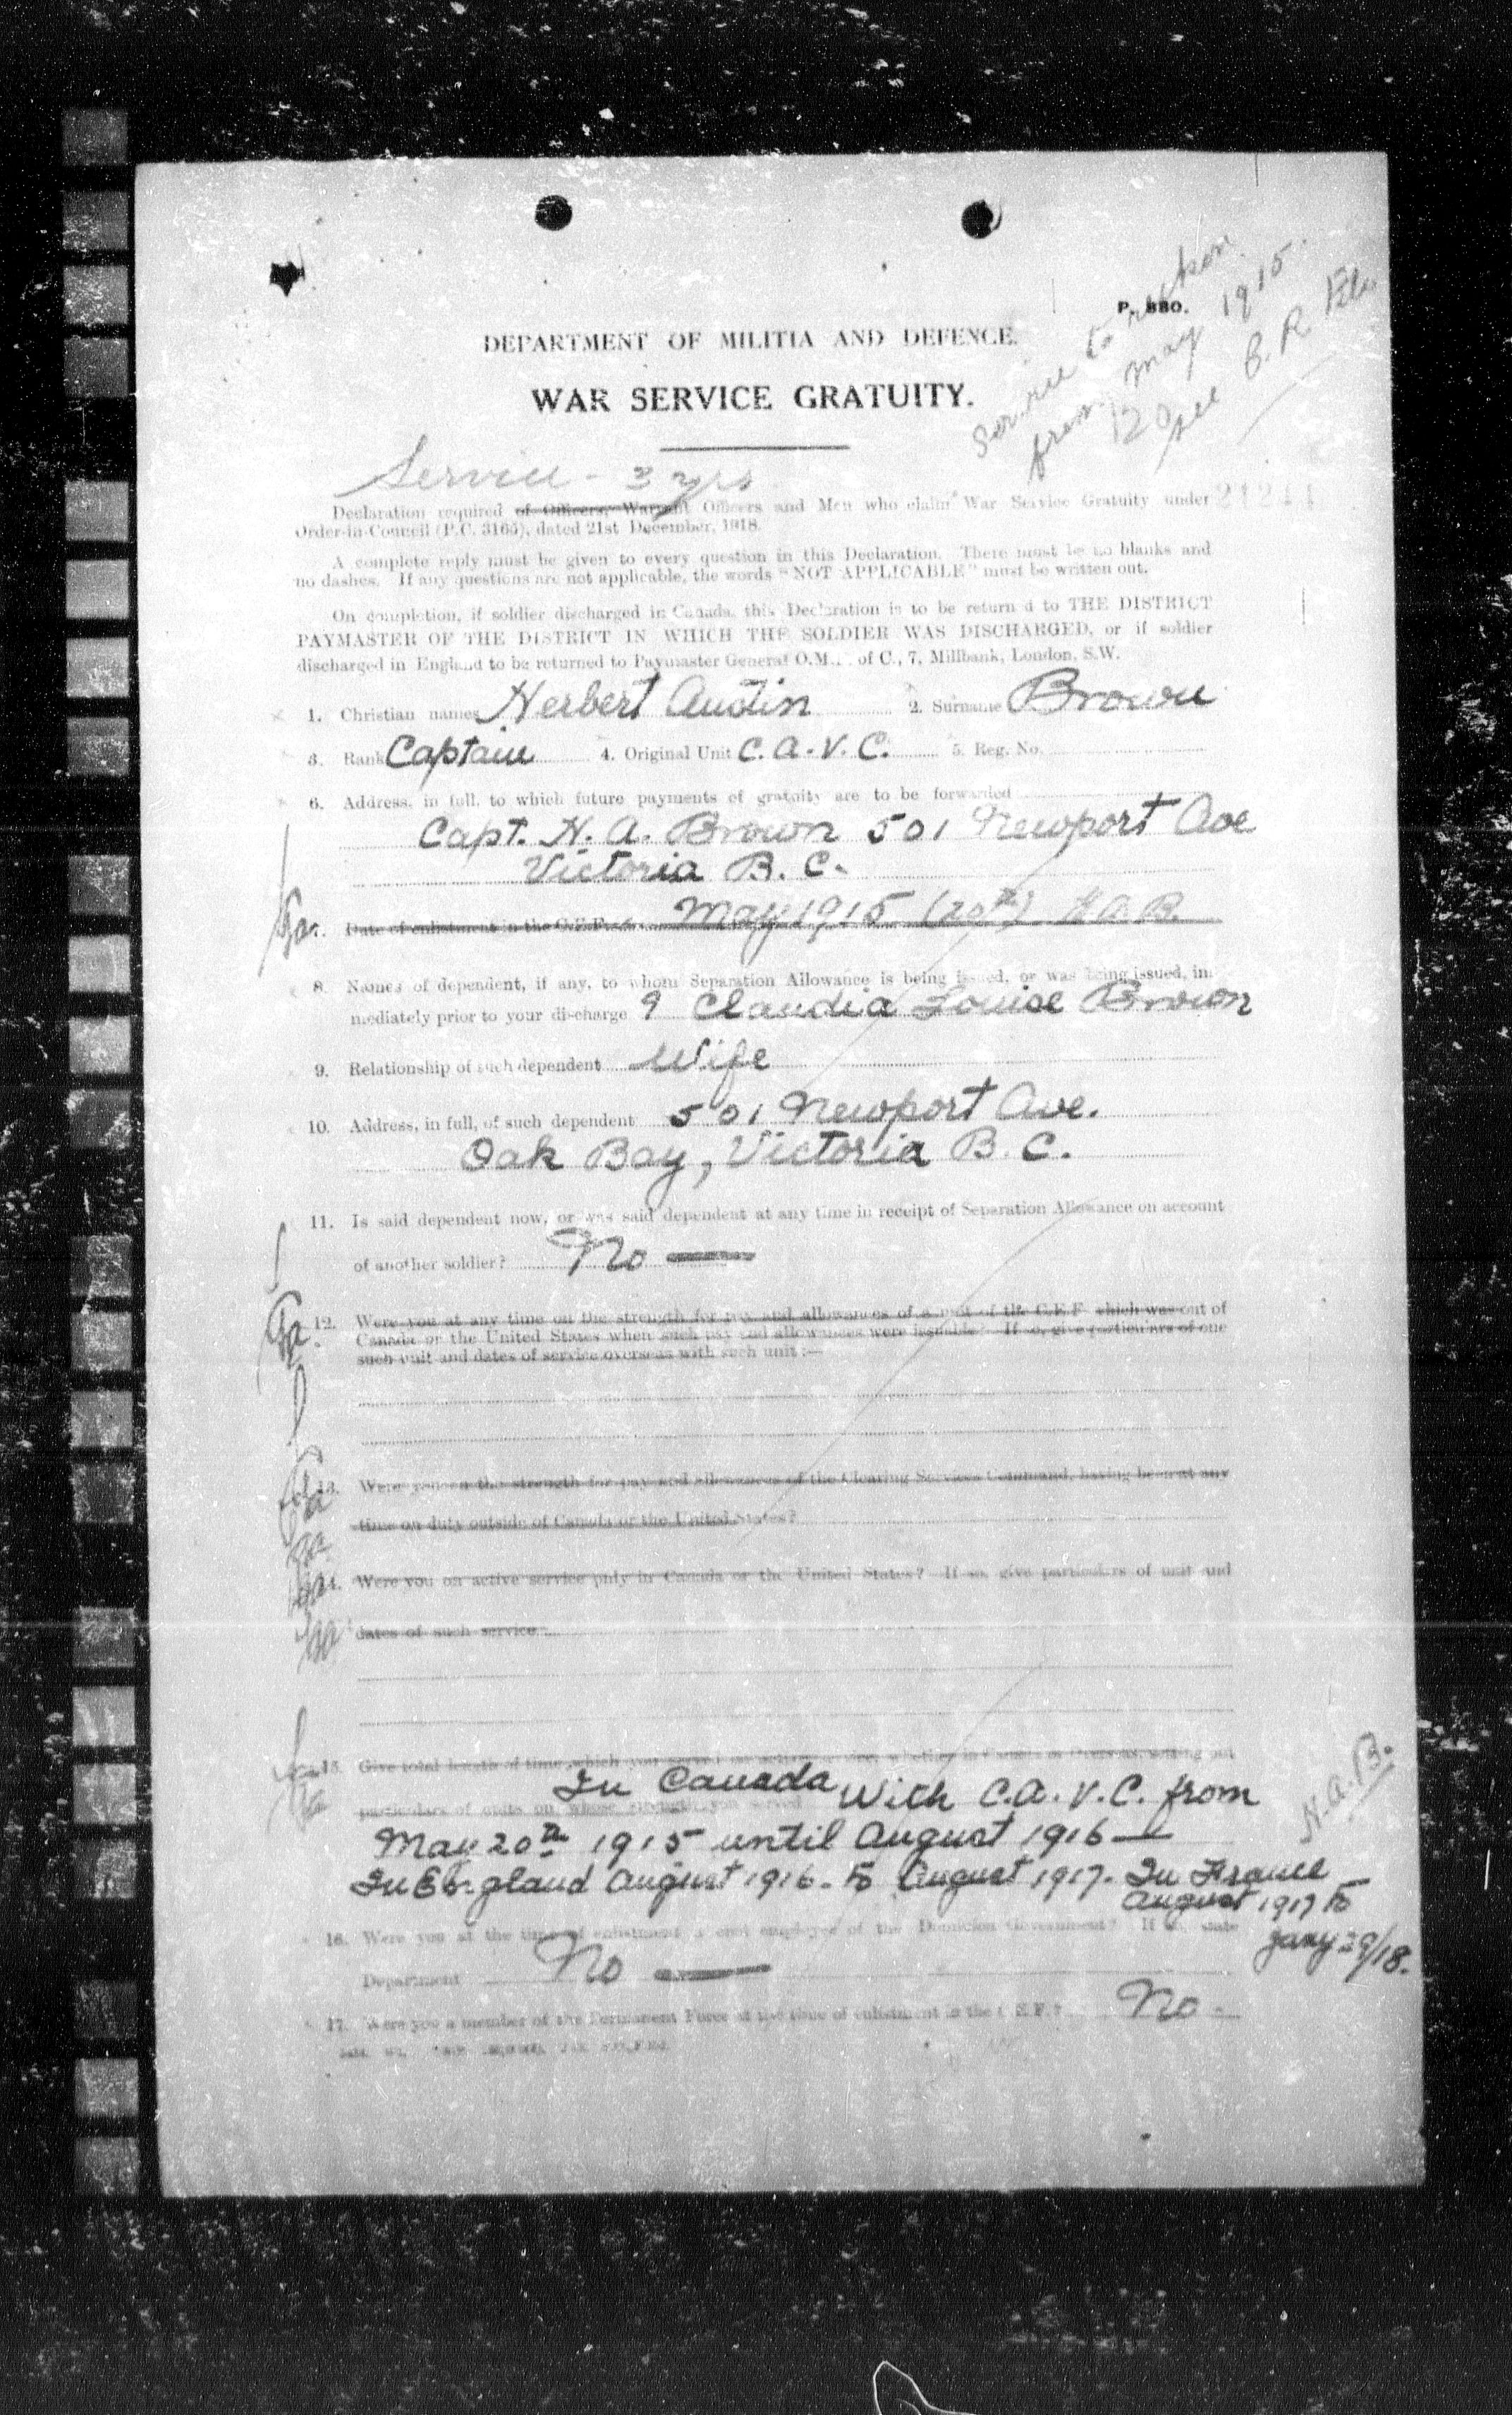 P. 880.
Service to reckon
from May 1915.
20
see B. R.
DEPARTMENT OF MILITIA AND DEFENCE.
WAR SERVICE GRATUITY.
Service - 3 yrs
Declaration required of Officers, Warrant Officers and Men who claim War Service Gratuity under
Order-in-Council (P.C. 3165), dated 21st December, 1918.
A complete reply must be given to every question in this Declaration. There must be no blanks and
no dashes. If any questions are not applicable, the words "NOT APPLICABLE" must be written out.
On completion, if soldier discharged in Canada, this Declaration is to be returned to THE DISTRICT
PAYMASTER OF THE DISTRICT IN WHICH THE SOLDIER WAS DISCHARGED, or if soldier
discharged in England to be returned to Paymaster General O.M. of C., 7, Millbank, London, S.W.
1. Christian names Herbert Austin 2. Surname Brown
3. Rank Captain 4. Original Unit C.A.V.C. 5. Reg. No.
6. Address, in full, to which future payments of gratuity are to be forwarded
Capt. H. A. Brown 501 Newport Ave
Victoria B. C.
7. Date of enlistment in the C.E.F. May 1915 (20th) H.A.B.
8. Names of dependent, if any, to whom Separation Allowance is being issued, or was being issued, im
mediately prior to your discharge ? Claudia Louise Brown
9. Relationship of such dependent Wife
10. Address, in full, of such dependent 501 Newport Ave.
Oak Bay, Victoria B. C.
11. Is said dependent now, or was said dependent at any time in receipt of Separation Allowance on account
of another soldier? No —
12. Were you at any time on the strength for pay and allowances of a unit of the C.E.F. which was out of
Canada or the United States when such pay and allowances were issuable? If so, give particulars of one
such unit and dates of service overseas with such unit:—
13. Were you on the strength for pay and allowances of the Clearing Services Command, having been at any
time on duty outside of Canada or the United States?
14. Were you on active service only in Canada or the United States? If so, give particulars of unit and
dates of such service
15. Give total length of time which you served on active service, whether in Canada or Overseas, setting out
particulars of units on whose strength you served In Canada With C.A.V.C. from
May 20th 1915 until August 1916 —
In England August 1916 - to August 1917. In France
August 1917 to
Jany 29/18.
H.A.B.
16. Were you at the time of enlistment a civil employee of the Dominion Government? If so, state
Department No —
17. Were you a member of the Permanent Force at the time of enlistment in the C.E.F.? No -